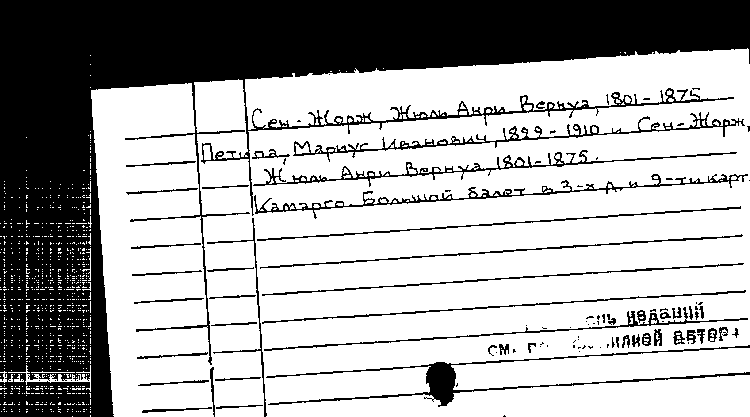 Сен-Жорж, Жюль Анри Вернуа, 1801-1875
Петипа, Мариус Иванович, 1822-1910 и Сен-Жорж,
Жюль Анри Вернуа, 1801-1875.
Камарго. Большой балет в 3-х д. и 9-ти карт.
изданий
см.